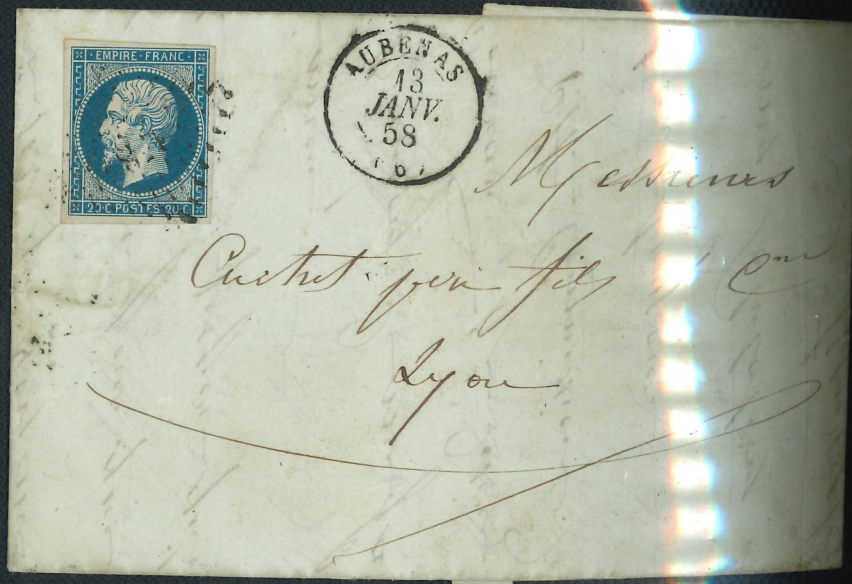 EMPIRE · FRANC
20·C POSTES 20·C
AUBENAS
13
JANV.
58
(6)
Messieurs
père fils & Cie
Lyon